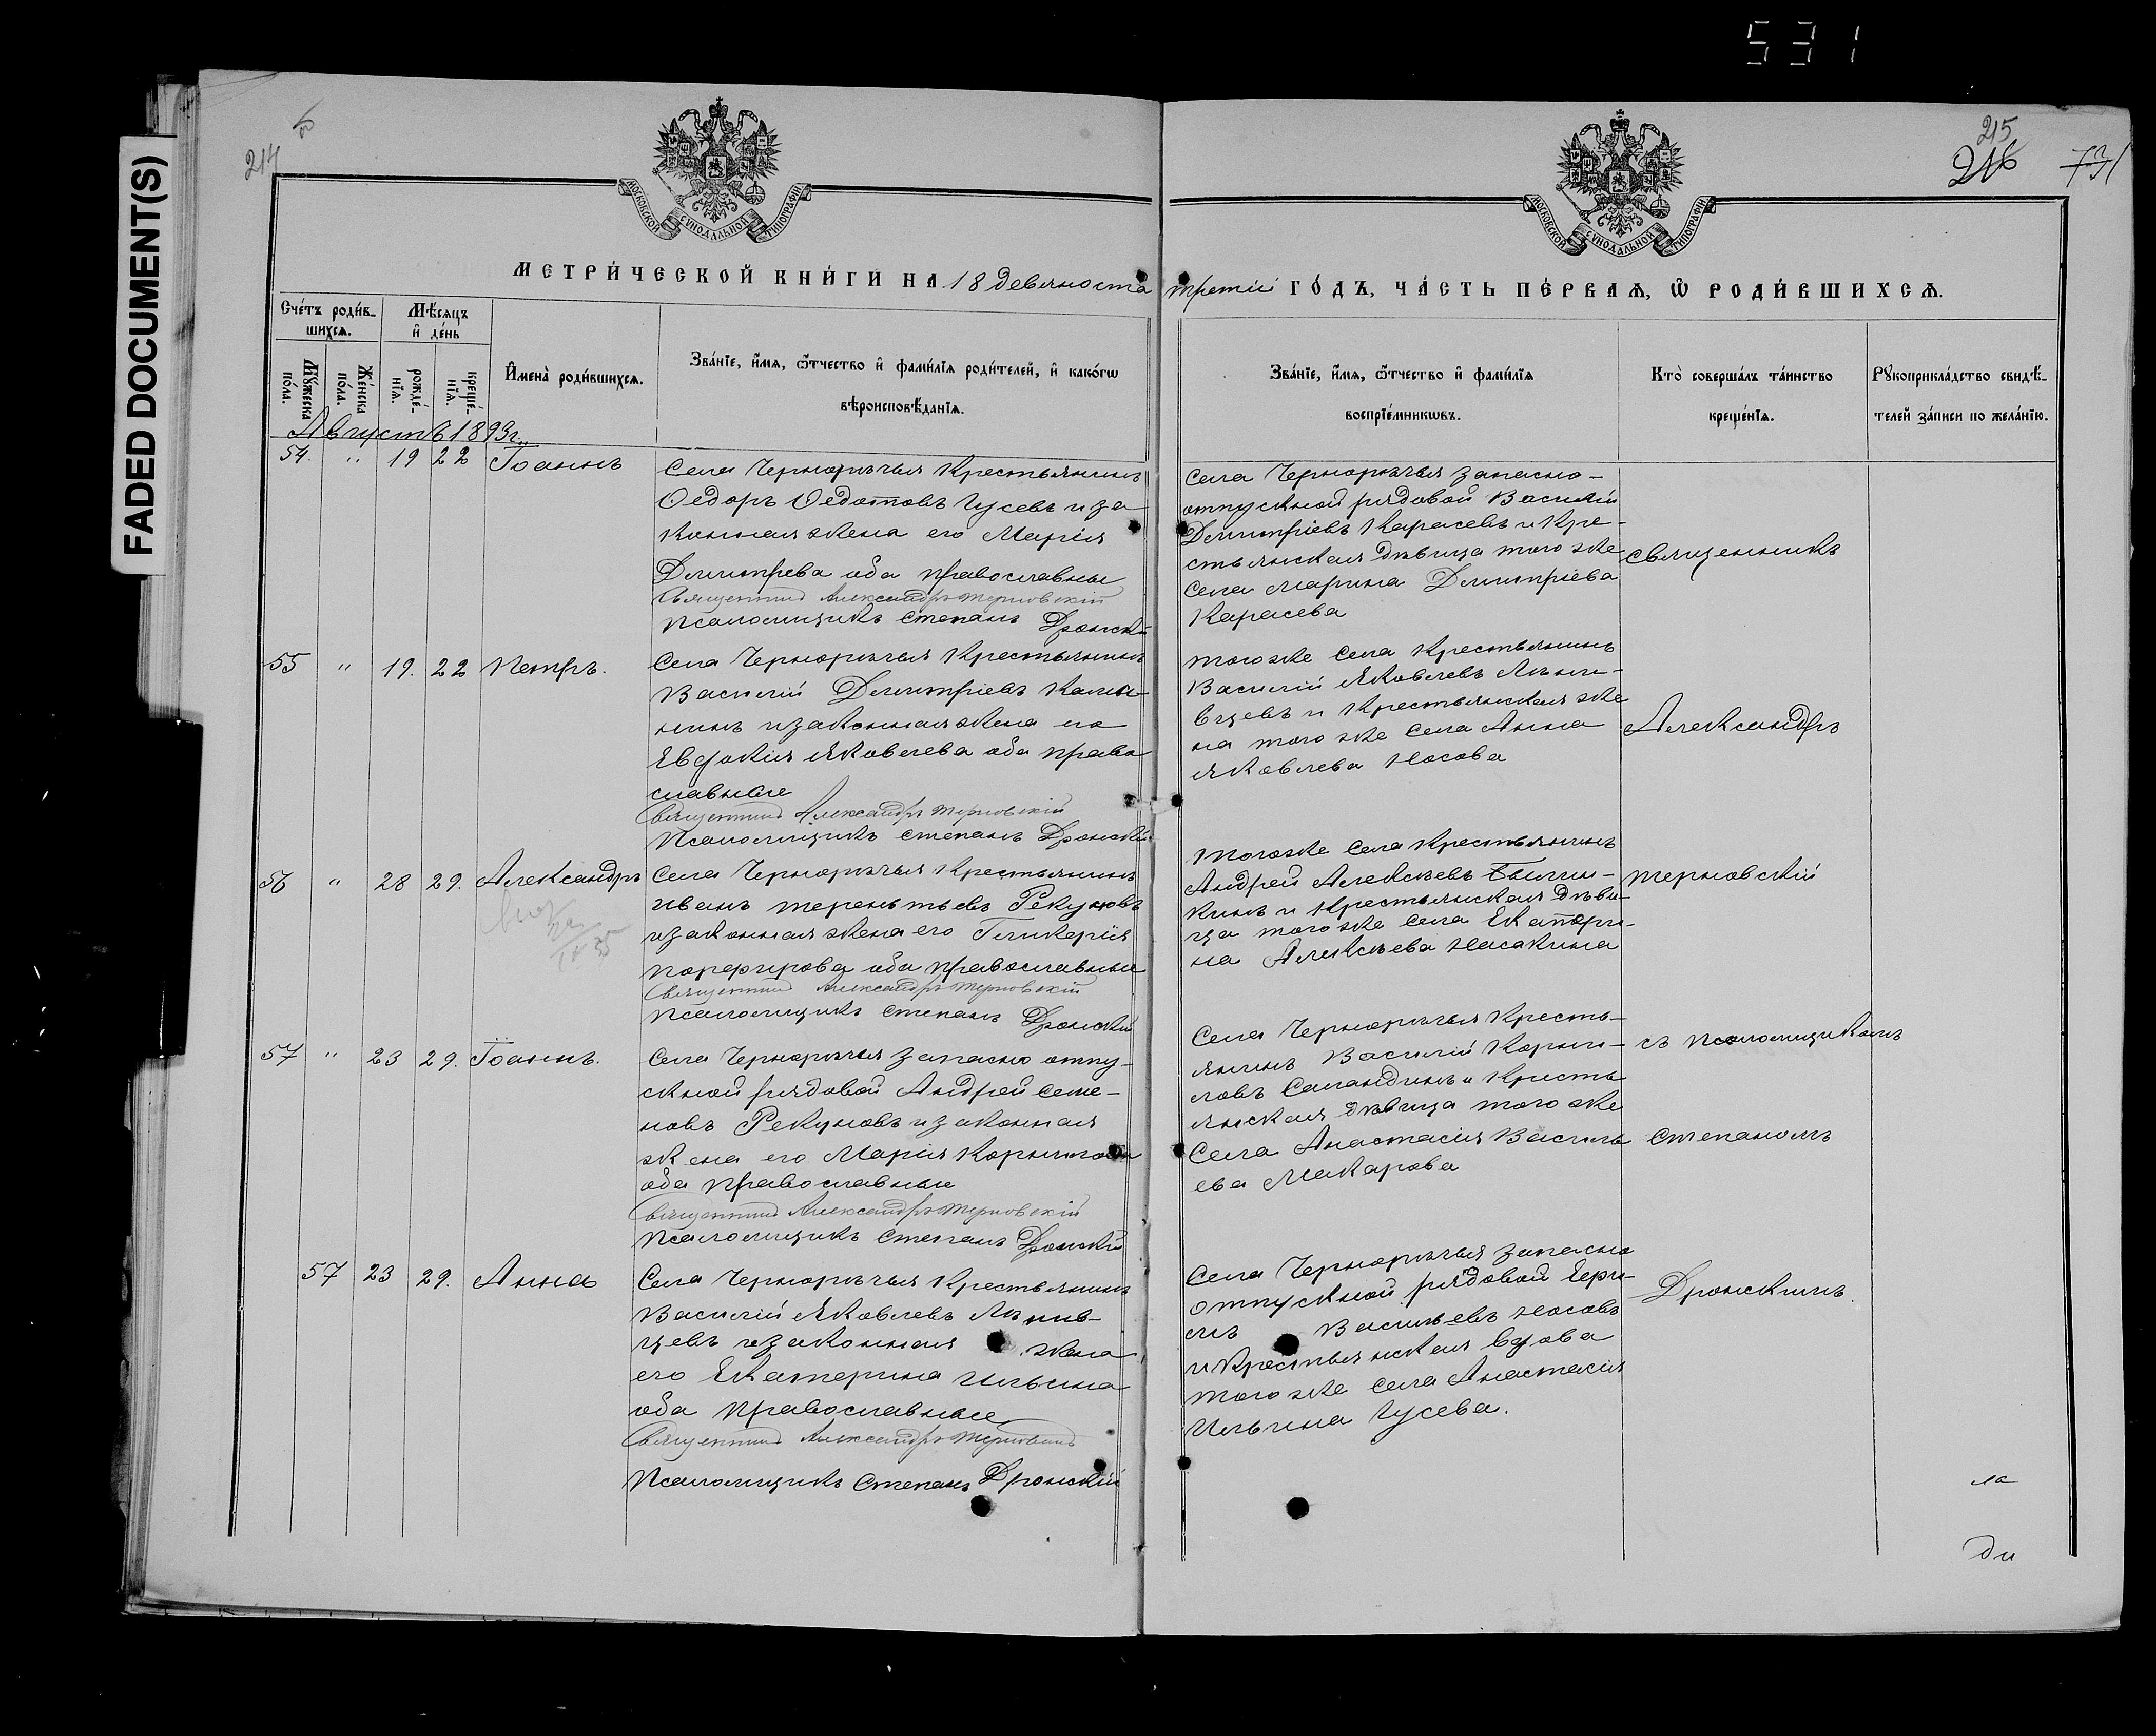 531
FADED DOCUMENT(S)
214
215
216
731
МОСКОВСКОЙ СѴНОДАЛЬНОЙ ТИПОГРАФІИ
МОСКОВСКОЙ СѴНОДАЛЬНОЙ ТИПОГРАФІИ
МЕТРИ́ЧЕСКОЙ КНИ́ГИ НА 18 девяноста третій ГО́ДЪ, ЧА́СТЬ ПЕ́РВАѦ, Ѡ РОДИ́ВШИХСѦ.
Сче́тъ роди́в-
шихсѧ.
Мѣ́сѧцъ
и҆ де́нь
Мꙋ́жеска
по́ла.
Же́нска
по́ла.
рожде́-
нїѧ.
креще́-
нїѧ.
И҆мена̀ роди́вшихсѧ.
Зва́нїе, и҆́мѧ, ѻ҆́тчество и҆ фами́лїѧ роди́телей, и҆ како́гѡ
вѣроисповѣ́данїѧ.
Зва́нїе, и҆́мѧ, ѻ҆́тчество и҆ фами́лїѧ
воспрїе́мникѡвъ.
Кто̀ соверша́лъ та́инство
креще́нїѧ.
Рꙋкоприкла́дство свидѣ́-
телей за́писи по жела́нїю.
Августъ 1893г.
54. " 19 22 Іоаннъ
Села Чернорѣчья Крестьянинъ
Ѳедоръ Ѳедотовъ Гусевъ и за
конная жена его Марія
Димитрева оба православные
Священникъ Александръ Терновскій
Псаломщикъ Степанъ Дронскій
Села Чернорѣчья запасно-
отпускной рядовой Василій
Димитріевъ Карасевъ и Кре-
стьянская дѣвица того же
села Марина Димитріева
Карасева
Священникъ
55 " 19. 22 Петръ.
Села Чернорѣчья Крестьянинъ
Василій Димитріевъ Кали-
нинъ и законная жена его
Евдокія Яковлева оба право
славные
Священникъ Александръ Терновскій
Псаломщикъ Степанъ Дронскій
того же села Крестьянинъ
Василій Яковлевъ Лѣни-
вцевъ и Крестьянская же
на того же села Анна
Яковлева Носова
Александръ
56 " 28 29. Александръ
Села Чернорѣчья Крестьянинъ
Иванъ Терентьевъ Рекуновъ
и законная жена его Гликерія
Порфирова оба православные
Священникъ Александръ Терновскій
Псаломщикъ Степанъ Дронскій
Того же села Крестьянинъ
Андрей Алексѣевъ
и Крестьянская дѣви-
ца того же села Екатери-
на Алексѣева Насакина
Терновскій
57 " 23 29. Іоаннъ.
Села Чернорѣчья запасно отпу-
скной рядовой Андрей Семе-
новъ Рекуновъ и законная
жена его Марія Корнилова
оба православные
Священникъ Александръ Терновскій
Псаломщикъ Степанъ Дронскій
Села Чернорѣчья Кресть-
янинъ Василій Корни-
ловъ Саландинъ и Кресть
янская дѣвица того же
Села Анастасія Василь
ева Макарова
съ псаломщикомъ
Степаномъ
57 23 29. Анна
Села Чернорѣчья Крестьянинъ
Василій Яковлевъ Лѣнив-
цевъ и законная жена
его Екатерина Ильина
оба православные
Священникъ Александръ Терновскій
Псаломщикъ Степанъ Дронскій
Села Чернорѣчья запасно
отпускной рядовой Ерм-
илъ Васильевъ Носовъ
и Крестьянская вдова
того же села Анастасія
Ильина Гусева.
Дронскимъ.
ла
ди